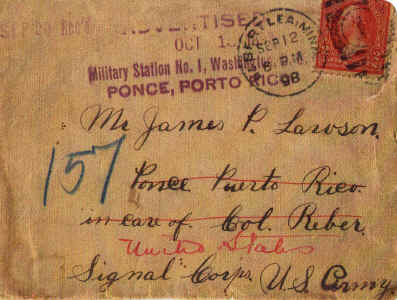 SEP 20 Rec'd
ADVERTISED
OCT 1
Military Station No. 1, Washington,
PONCE, PORTO RICO
ALBERT LEA, MINN.
SEP 12
98
Mr James P. Lawson.
157
Ponce Puerto Rico.
in care of Col. Reber.
United States
Signal Corps, U.S. Army.